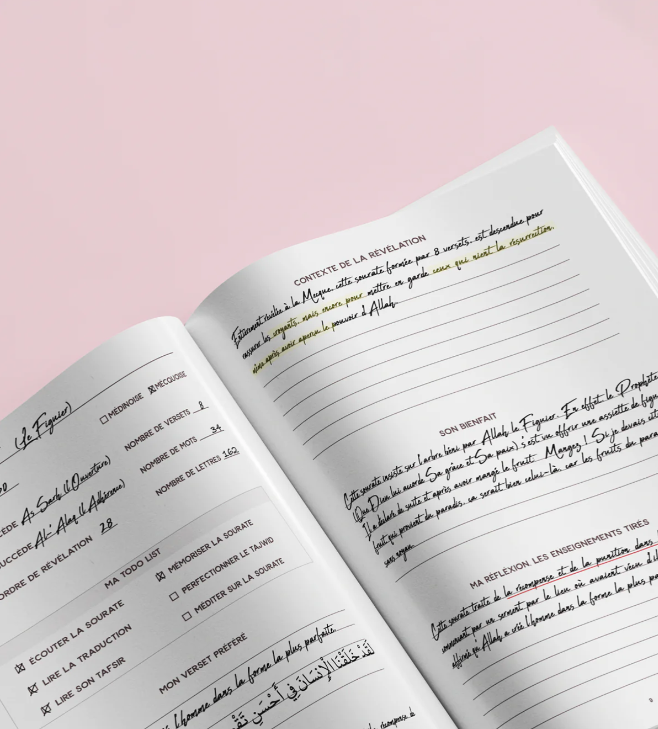 (le Figuier)
MÉDINOISE MÉCQUOISE
NOMBRE DE VERSETS 8
NOMBRE DE MOTS 34
NOMBRE DE LETTRES 162
As-Sarh (l'Ouverture)
Al-'Alaq (l'Adhérence)
ORDRE DE RÉVÉLATION 28
MA TODO LIST
ÉCOUTER LA SOURATE
LIRE LA TRADUCTION
LIRE SON TAFSIR
MÉMORISER LA SOURATE
PERFECTIONNER LE TAJWID
MÉDITER SUR LA SOURATE
MON VERSET PRÉFÉRÉ
l'homme dans la forme la plus parfaite.
لَقَدْ خَلَقْنَا الْإِنسَانَ فِي أَحْسَنِ
CONTEXTE DE LA RÉVÉLATION
Entièrement révélée à la Mecque, cette sourate formée par 8 versets, est descendue pour
rassurer les croyants, mais encore pour mettre en garde ceux qui nient la résurrection,
même après avoir aperçu le pouvoir d'Allah.
SON BIENFAIT
Cette sourate insiste sur l'arbre béni par Allah, le Figuier. En effet, le Prophète
(Que Dieu lui accorde Sa grâce et Sa paix) s'est vu offrir une assiette de
Il a déclaré de suite et après avoir mangé le fruit. Mangez! Si je devais
fruit qui provient du paradis, ce serait bien celui-là, car les fruits du
sans noyau.
MA RÉFLEXION, LES ENSEIGNEMENTS TIRÉS
Cette sourate traite de la récompense et de la punition dans
commençant par un serment par le lieu où avaient vécu
affirmé qu'Allah a créé l'homme dans la forme la plus